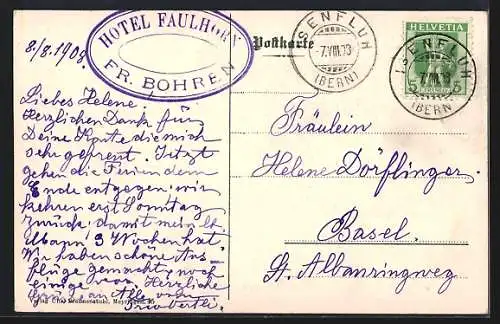 8/8. 1908.
HOTEL FAULHORN
FR. BOHREN
Postkarte
ISENFLUH
-7.VIII.
(BERN)
HELVETIA
5 5
ISENFLUH
7.VIII.
(BERN)
Liebes Helene!
Herzlichen Dank für
Deine Karte die mich
sehr gefreut. Jetzt
gehen die Ferien dem
Ende entgegen; wir
kehren erst Sonntag
zurück; damit mein lb.
Mann 3 Wochen hat.
Wir haben schöne Aus
flüge gemacht, noch
einige vor. Herzliche
Grüsse an Alle von
Fräulein
Helene Dörflinger.
Basel.
St. Albanringweg